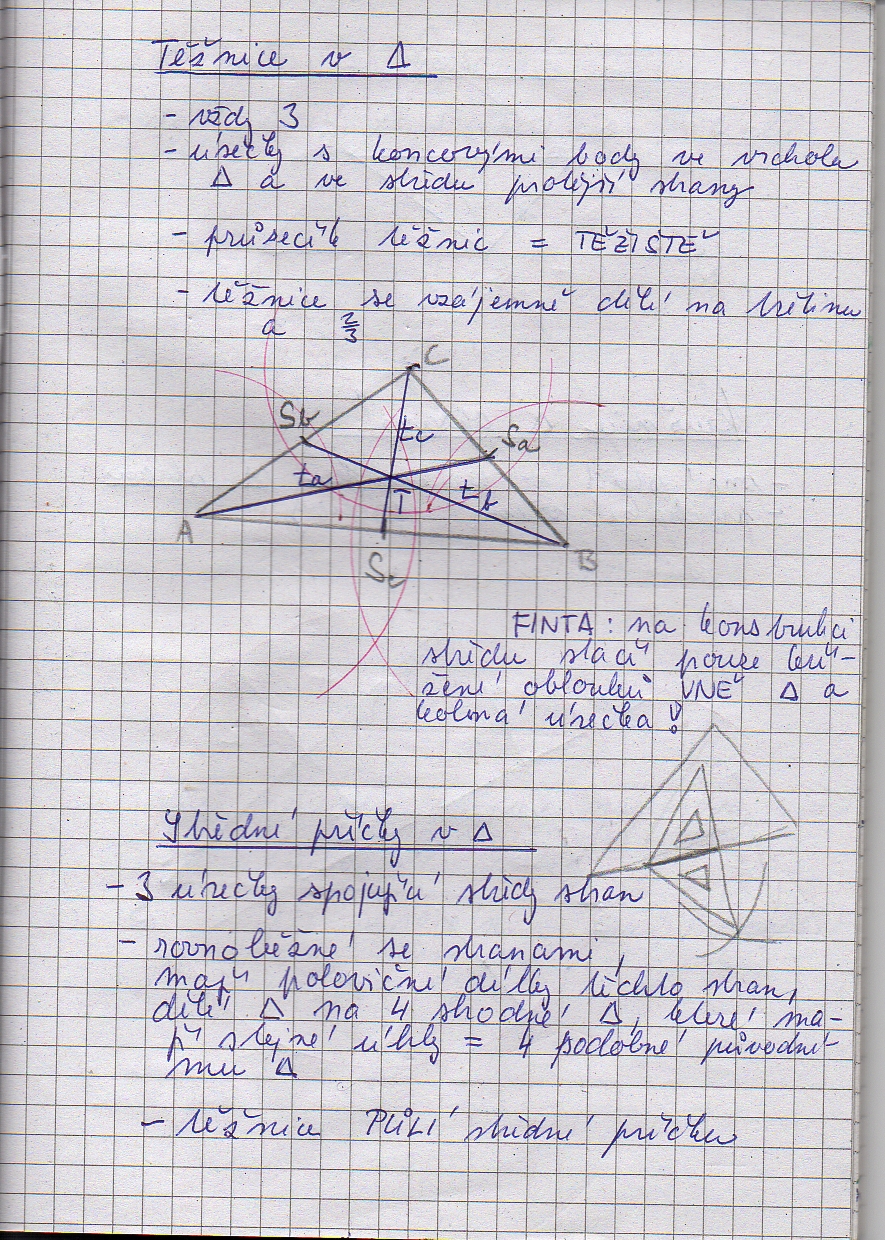 Těžnice v Δ
- vždy 3
- úsečky s koncovými body ve vrcholu
Δ a ve středu protější strany
- průsečík těžnic = TĚŽIŠTĚ
- těžnice se vzájemně dělí na třetinu
a 2/3
C
Sb
tc
Sa
ta
T
tb
A
Sc
B
FINTA: na konstrukci
středu stačí pouze krú-
žení oblouků VNĚ Δ a
kolmá úsečka!
Střední příčky v Δ
- 3 úsečky spojující středy stran
- rovnoběžné se stranami,
mají poloviční délky těchto stran,
dělí Δ na 4 shodné Δ, které ma-
jí stejné úhly = 4 podobné původní-
mu Δ
- těžnice PŮLÍ střední příčku